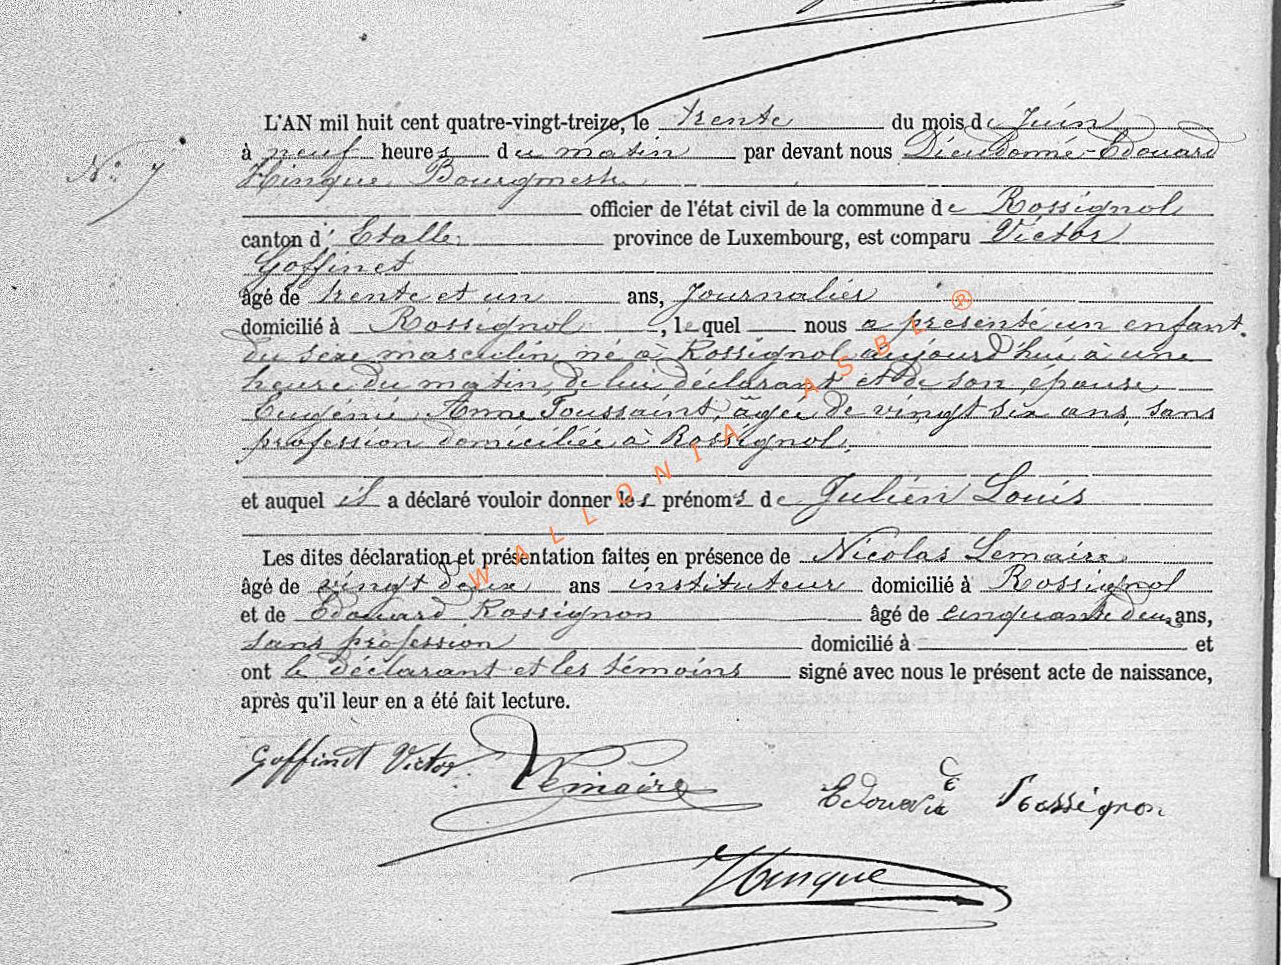 L'AN mil huit cent quatre-vingt-treize, le trente du mois de Juin
N° 7
à neuf heures du matin par devant nous Dieudonné-Edouard
Hinque, Bourgmestre
officier de l'état civil de la commune de Rossignol
canton d'Etalle, province de Luxembourg, est comparu Victor
Goffinet
âgé de trente et un ans, Journalier
domicilié à Rossignol, lequel nous a présenté un enfant
du sexe masculin, né à Rossignol aujourd'hui à une
heure du matin, de lui déclarant et de son épouse
Eugénie Anne Toussaint, âgée de vingt six ans, sans
profession domiciliée à Rossignol,
et auquel il a déclaré vouloir donner les prénoms de Julien Louis
Les dites déclaration et présentation faites en présence de Nicolas Lemaire
âgé de vingt deux ans instituteur domicilié à Rossignol
et de Edouard Rossignon âgé de cinquante deux ans,
sans profession domicilié à et
ont le déclarant et les témoins signé avec nous le présent acte de naissance,
après qu'il leur en a été fait lecture.
Goffinet Victor. Lemaire Edouard Rossignon
Hinque
WALLONIA ASBL ®